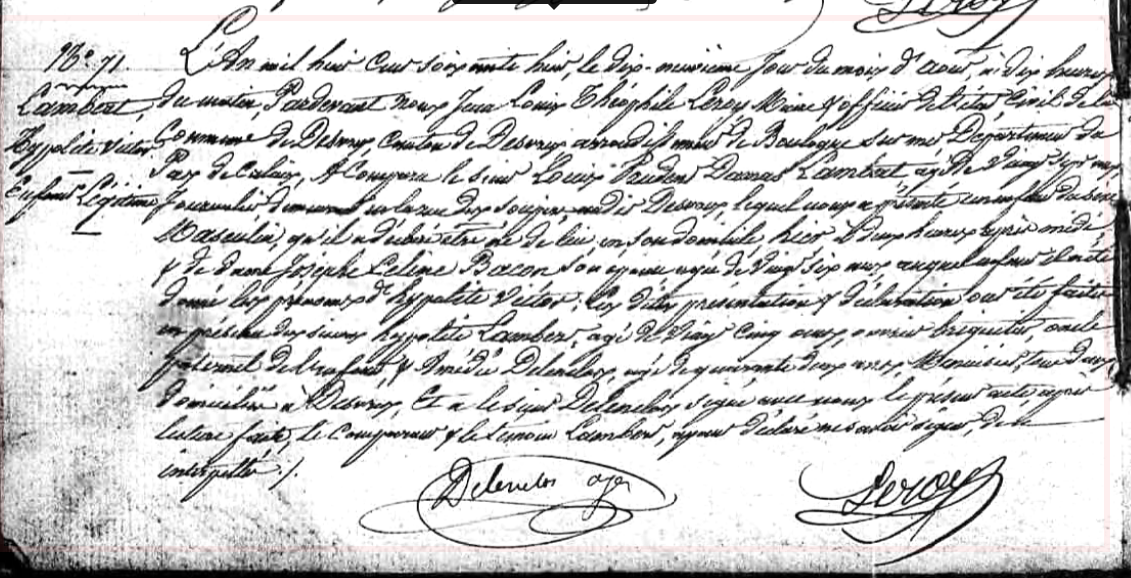 N°. 71.
Lambert,
Hyppolite Victor
Enfant Légitime
L'An mil huit cent soixante huit, le dix-neuvième jour du mois d'août, à dix heures
du matin, Pardevant nous Jean Louis Théophile Leroy Maire & officier de l'état Civil de la
Commune de Desvres, Canton de Desvres arrondissement de Boulogne sur mer Département du
Pas de Calais, A Comparu le sieur Louis Prudent Lambert agé de vingt sept ans,
Journalier, demeurant sur la rue des audit Desvres, lequel nous a présenté un enfant du sexe
Masculin, qu'il a déclaré être né de lui, en son domicile, hier à deux heures après midi
& de dame Josèphe Céline Bacon son épouse agée de vingt six ans, auquel enfant il a été
donné les prénoms d'hyppolite Victor; Ces dites présentation & déclaration ont été faites
en présence des sieurs hyppolite Lambert, agé de vingt cinq ans, ouvrier briquetier, oncle
paternel de l'enfant & Amédée Delenclos, agé de quarante deux ans, Menuisier, tous deux
domiciliés à Desvres, Et a le sieur Delenclos signé avec nous le présent acte après
lecture faite, le Comparant & le témoin Lambert, ayant déclaré ne savoir signer, de ce
interpellés ./.
Delenclos Leroy
Leroy